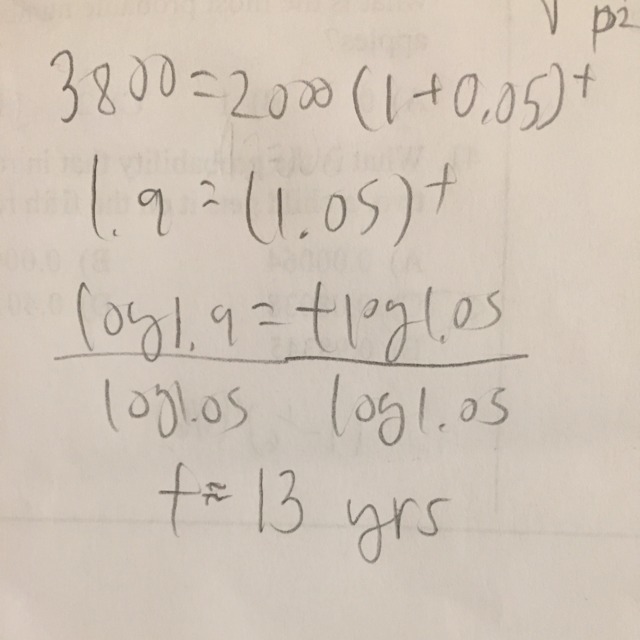 p2
3800=2000(1+0.05)^t
1.9=(1.05)^t
log1.9=tlog1.05
log1.05 log1.05
t≈13 yrs